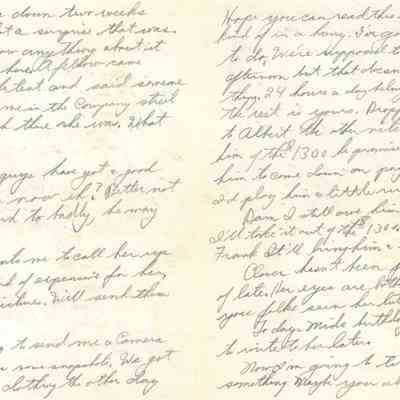 down two weeks
t a surprise that was.
ow anything about it
here. A fellow came
tent and said someone
me in the Company street
h there she was. What
guys have got a good
now eh? Better not
to badly, he may
me to call her eye
of expensive for her,
pictures. Will send them
to send me a Camera
some snapshots. We got
clothing the other day
Hope you can read this
kind of in a hurry. I've go
to do, We're supposed t
afternoon but that doesn
thing. 24 hours a day belong
the rest is yours.
to Albert the other nite
him of the $1300 he promise
him to come down on pay
I'd play him a little
Damn I still owe him
I'll take it out of the $1300
Frank I'll bring him a
Clover hasn't been f
of late. Her eyes are both
your folks seen her lat
To-days Mids birthd
to write to her later.
Now I'm going to te
something. Maybe you al